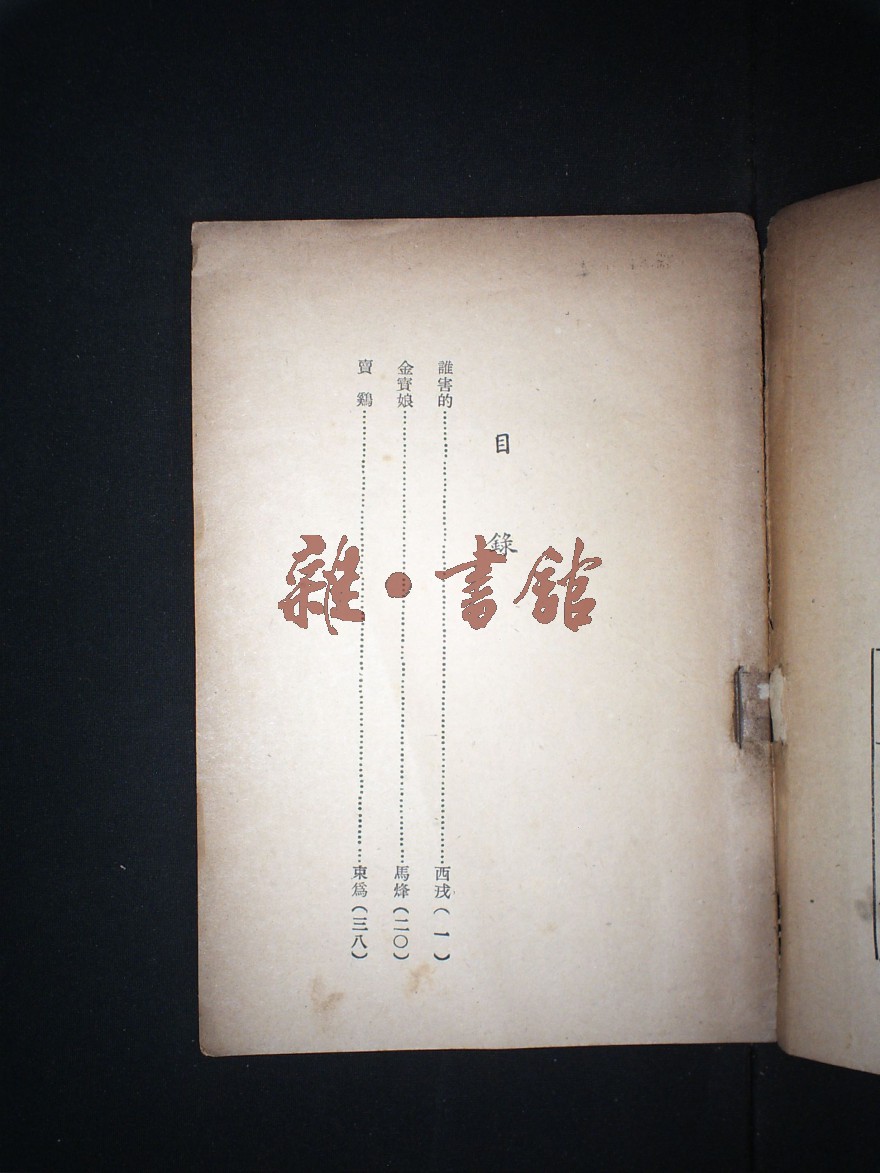 目錄
誰害的……西戎(一)
金寶娘……馬烽(二〇)
賣鷄……束爲(三八)
雜·書館